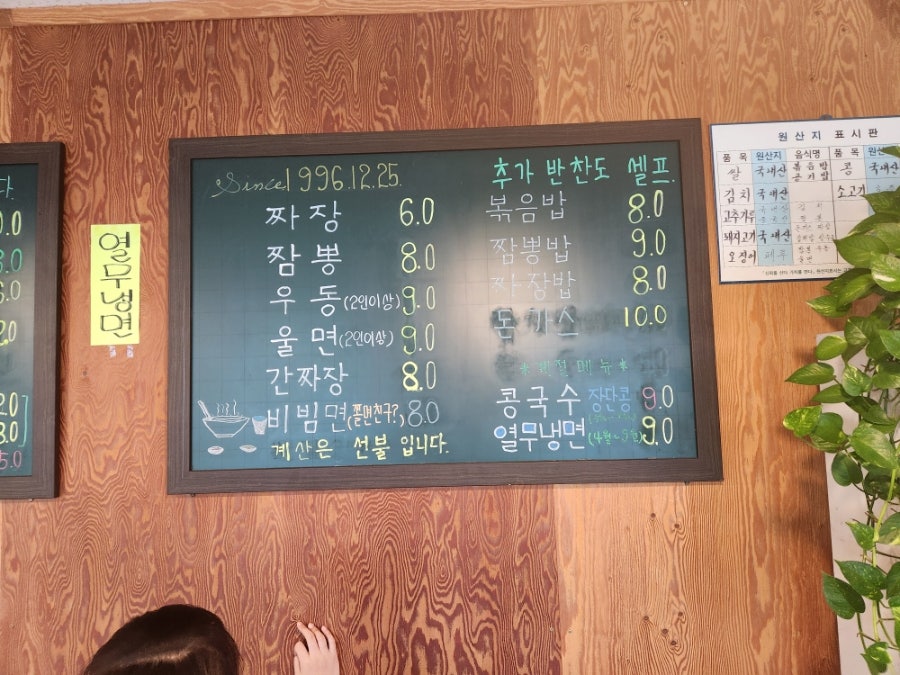 다.
0.0
8.0
6.0
2.0
2.0
8.0
5.0
열무냉면
Since 1996.12.25.
짜장 6.0
짬뽕 8.0
우동 (2인이상) 9.0
울면 (2인이상) 9.0
간짜장 8.0
비빔면 (쫄면친구?) 8.0
계산은 선불 입니다.
추가 반찬도 셀프.
볶음밥 8.0
짬뽕밥 9.0
짜장밥 8.0
돈가스 10.0
*계절메뉴*
콩국수 장단콩 9.0
열무냉면 9.0
원산지 표시판
품목 원산지 음식명 품목
쌀 국내산 볶음밥 공기밥 콩 국내산
김치 국내산 소고기
고추가루
돼지고기 국내산
오징어 페루